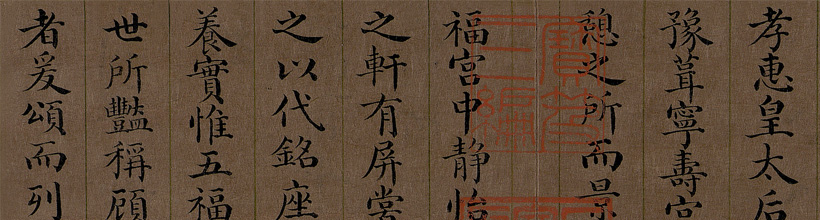 孝惠皇太后
豫葺寧壽宮
憩之所而景
福宮中静怡
之軒有屏嘗
之以代銘座
養實惟五福
世所豔稱顧
者爰頌而列